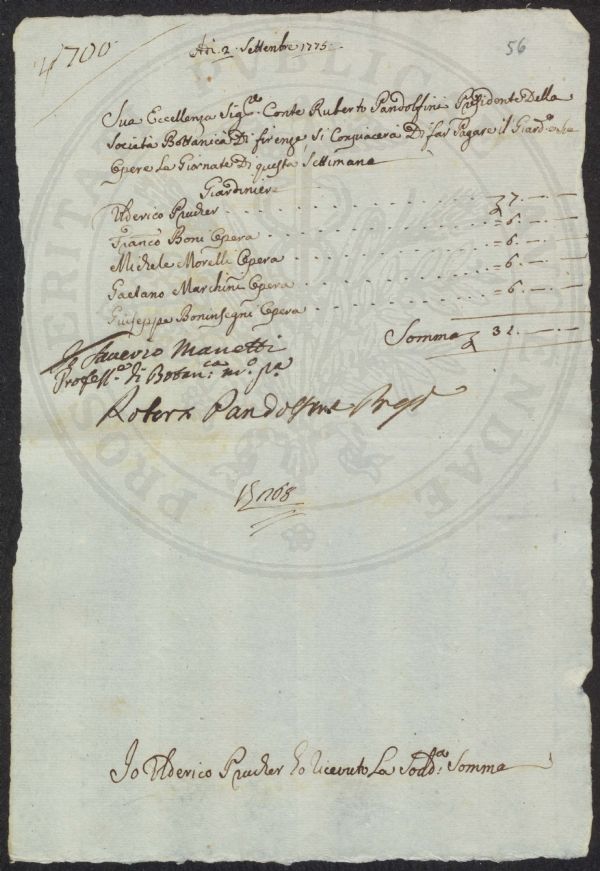 700
56
Adi. 2. Settembre 1775.
Sua Eccellenza Sig.re Conte Ruberto Pandolfini Presidente Della
Società Bottanica Di firenze si Conpiacerà Di far Pagare il Giard.e e le
Opere Le Giornate Di questa Settimana
Giardiniere
Ulderico Prucher 7
Franco Boni Opera = 6
Michele Morelli Opera = 6
Gaetano Marchini Opera = 6
Giuseppe Boninsegni Opera = 6
Somma 31
Saverio Manetti
Profess.e di Botan.ca m.o pa
Roberto Pandolfini Pres.
1768
Io Ulderico Prucher ho ricevuto La Sodd.a Somma
PUBLICAE
PROSPERITATI